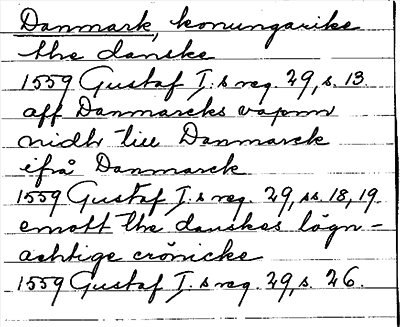 Danmark, konungarike
the danske
1559 Gustaf I.s reg. 29, s. 13.
aff Danmarcks vapnn
nidh till Danmarck
ifrå Danmarck
1559 Gustaf I.s reg. 29, ss. 18, 19.
emott the danskes lögn-
achtige crönicke
1559 Gustaf I.s reg. 29, s. 26.